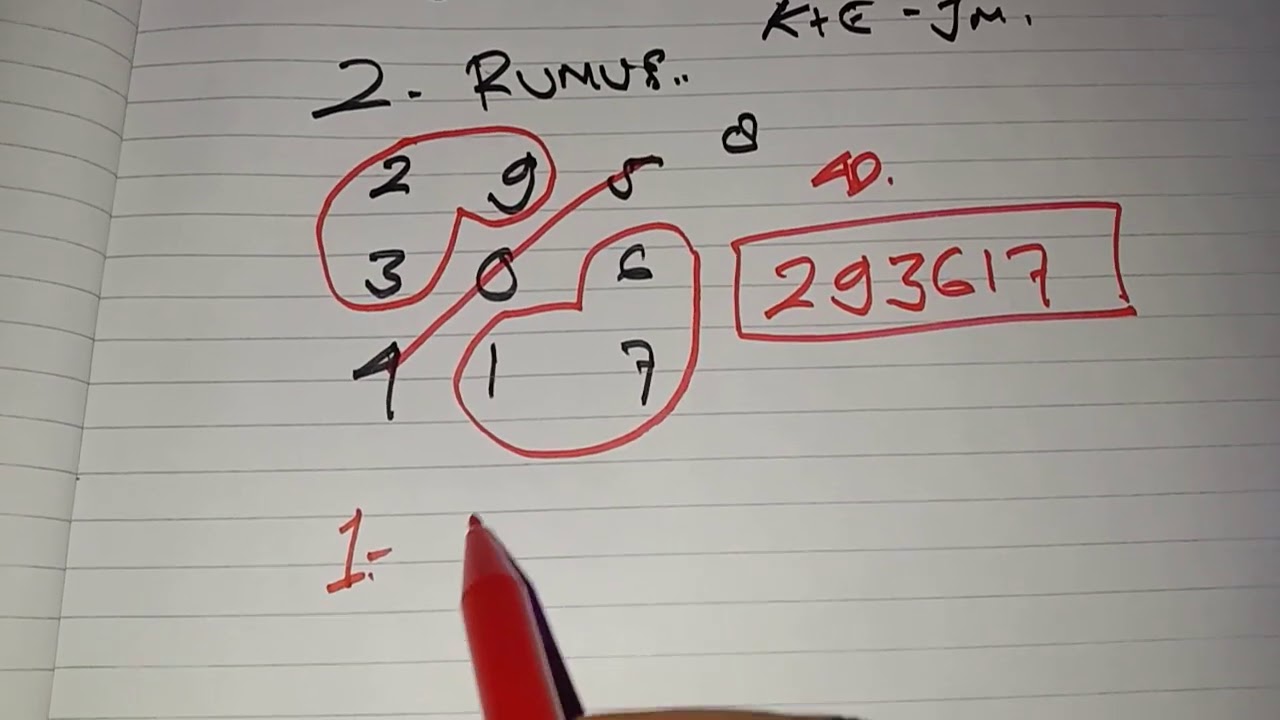 K+E - JM.
2. RUMUS..
8
2 9 5
4D.
3 0 6
293617
4 1 7
1.-